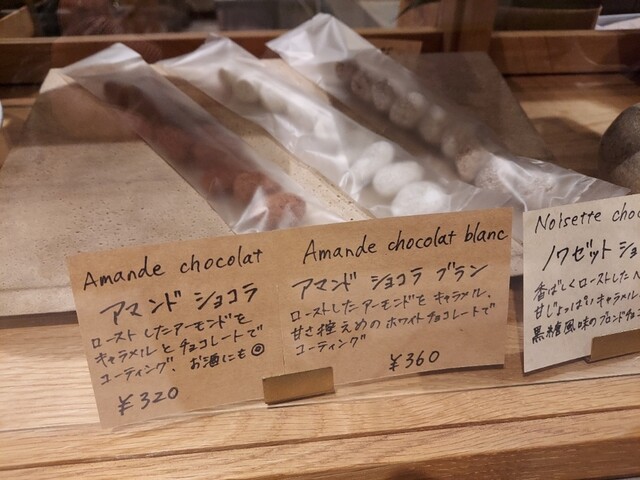 Amande chocolat
アマンド ショコラ
ローストしたアーモンドを
キャラメルとチョコレートで
コーティング. お酒にも◎
¥320
Amande chocolat blanc
アマンド ショコラ ブラン
ローストしたアーモンドをキャラメル、
甘さ控えめのホワイトチョコレートで
コーティング
¥360
Noisette choc
ノワゼット ショ
香ばしくローストしたヘ
甘じょっぱいキャラメル
黒糖風味のブロンドチョコ